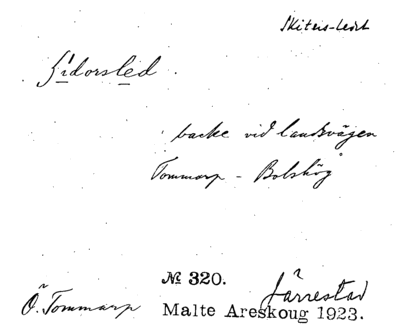 Skitersledet
Sidorsled
backe vid landsvägen
Tommarp - Bolshög
№ 320.
Järrestad
Ö. Tommarp
Malte Areskoug 1923.